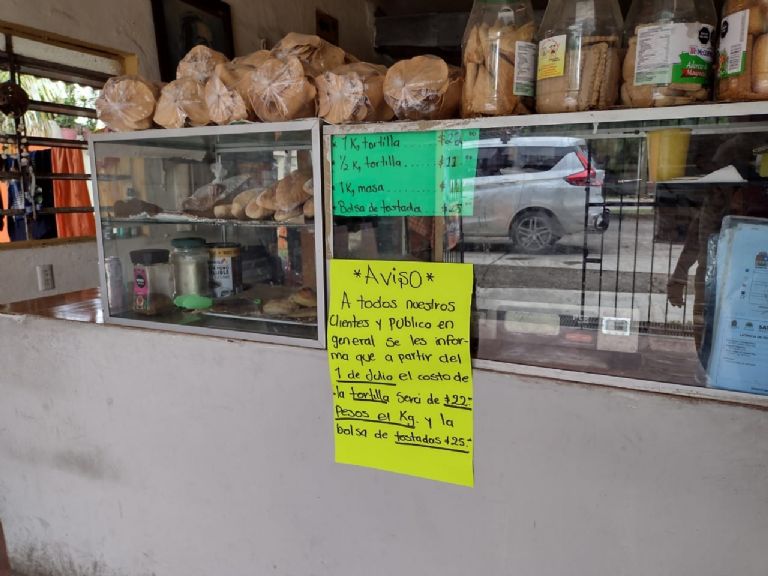 1 K, tortilla ..... $22.00
1/2 K, tortilla ..... $11.00
1K, masa ........
Bolsa de tostada $25.-
*AVISO*
A todos nuestros
Clientes y público en
general se les infor-
ma que a partir del
1 de Julio el costo de
la tortilla será de $22.-
Pesos el Kg. y la
bolsa de tostadas $25.-